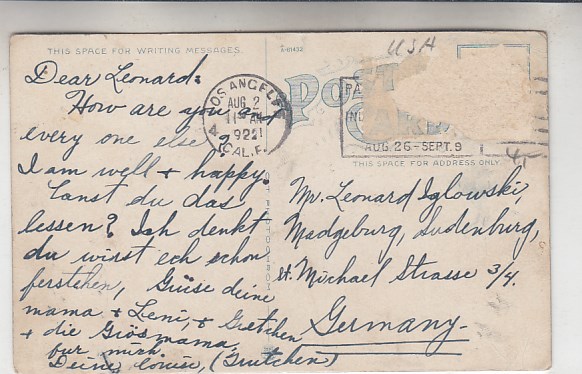 THIS SPACE FOR WRITING MESSAGES.
A-61432
USA
POST
CARD
LOS ANGELES
AUG 2
11 30 AM
1921
CALIF.
4
PA
IN
AUG 26-SEPT. 9
THIS SPACE FOR ADDRESS ONLY.
4,-
Dear Leonard:
How are you and
every one else?
I am well + happy.
Canst du das
lessen? Ich denkt
du wirst ech schon
ferstehen, Grüse deine
mama + Leni, + Gretchen
+ die Grösmama,
fur mich.
Deine Louise, (Grutchen)
Mr. Leonard Iglowski,
Madgeburg, Sudenburg,
St. Michael Strasse 3/4.
Germany.